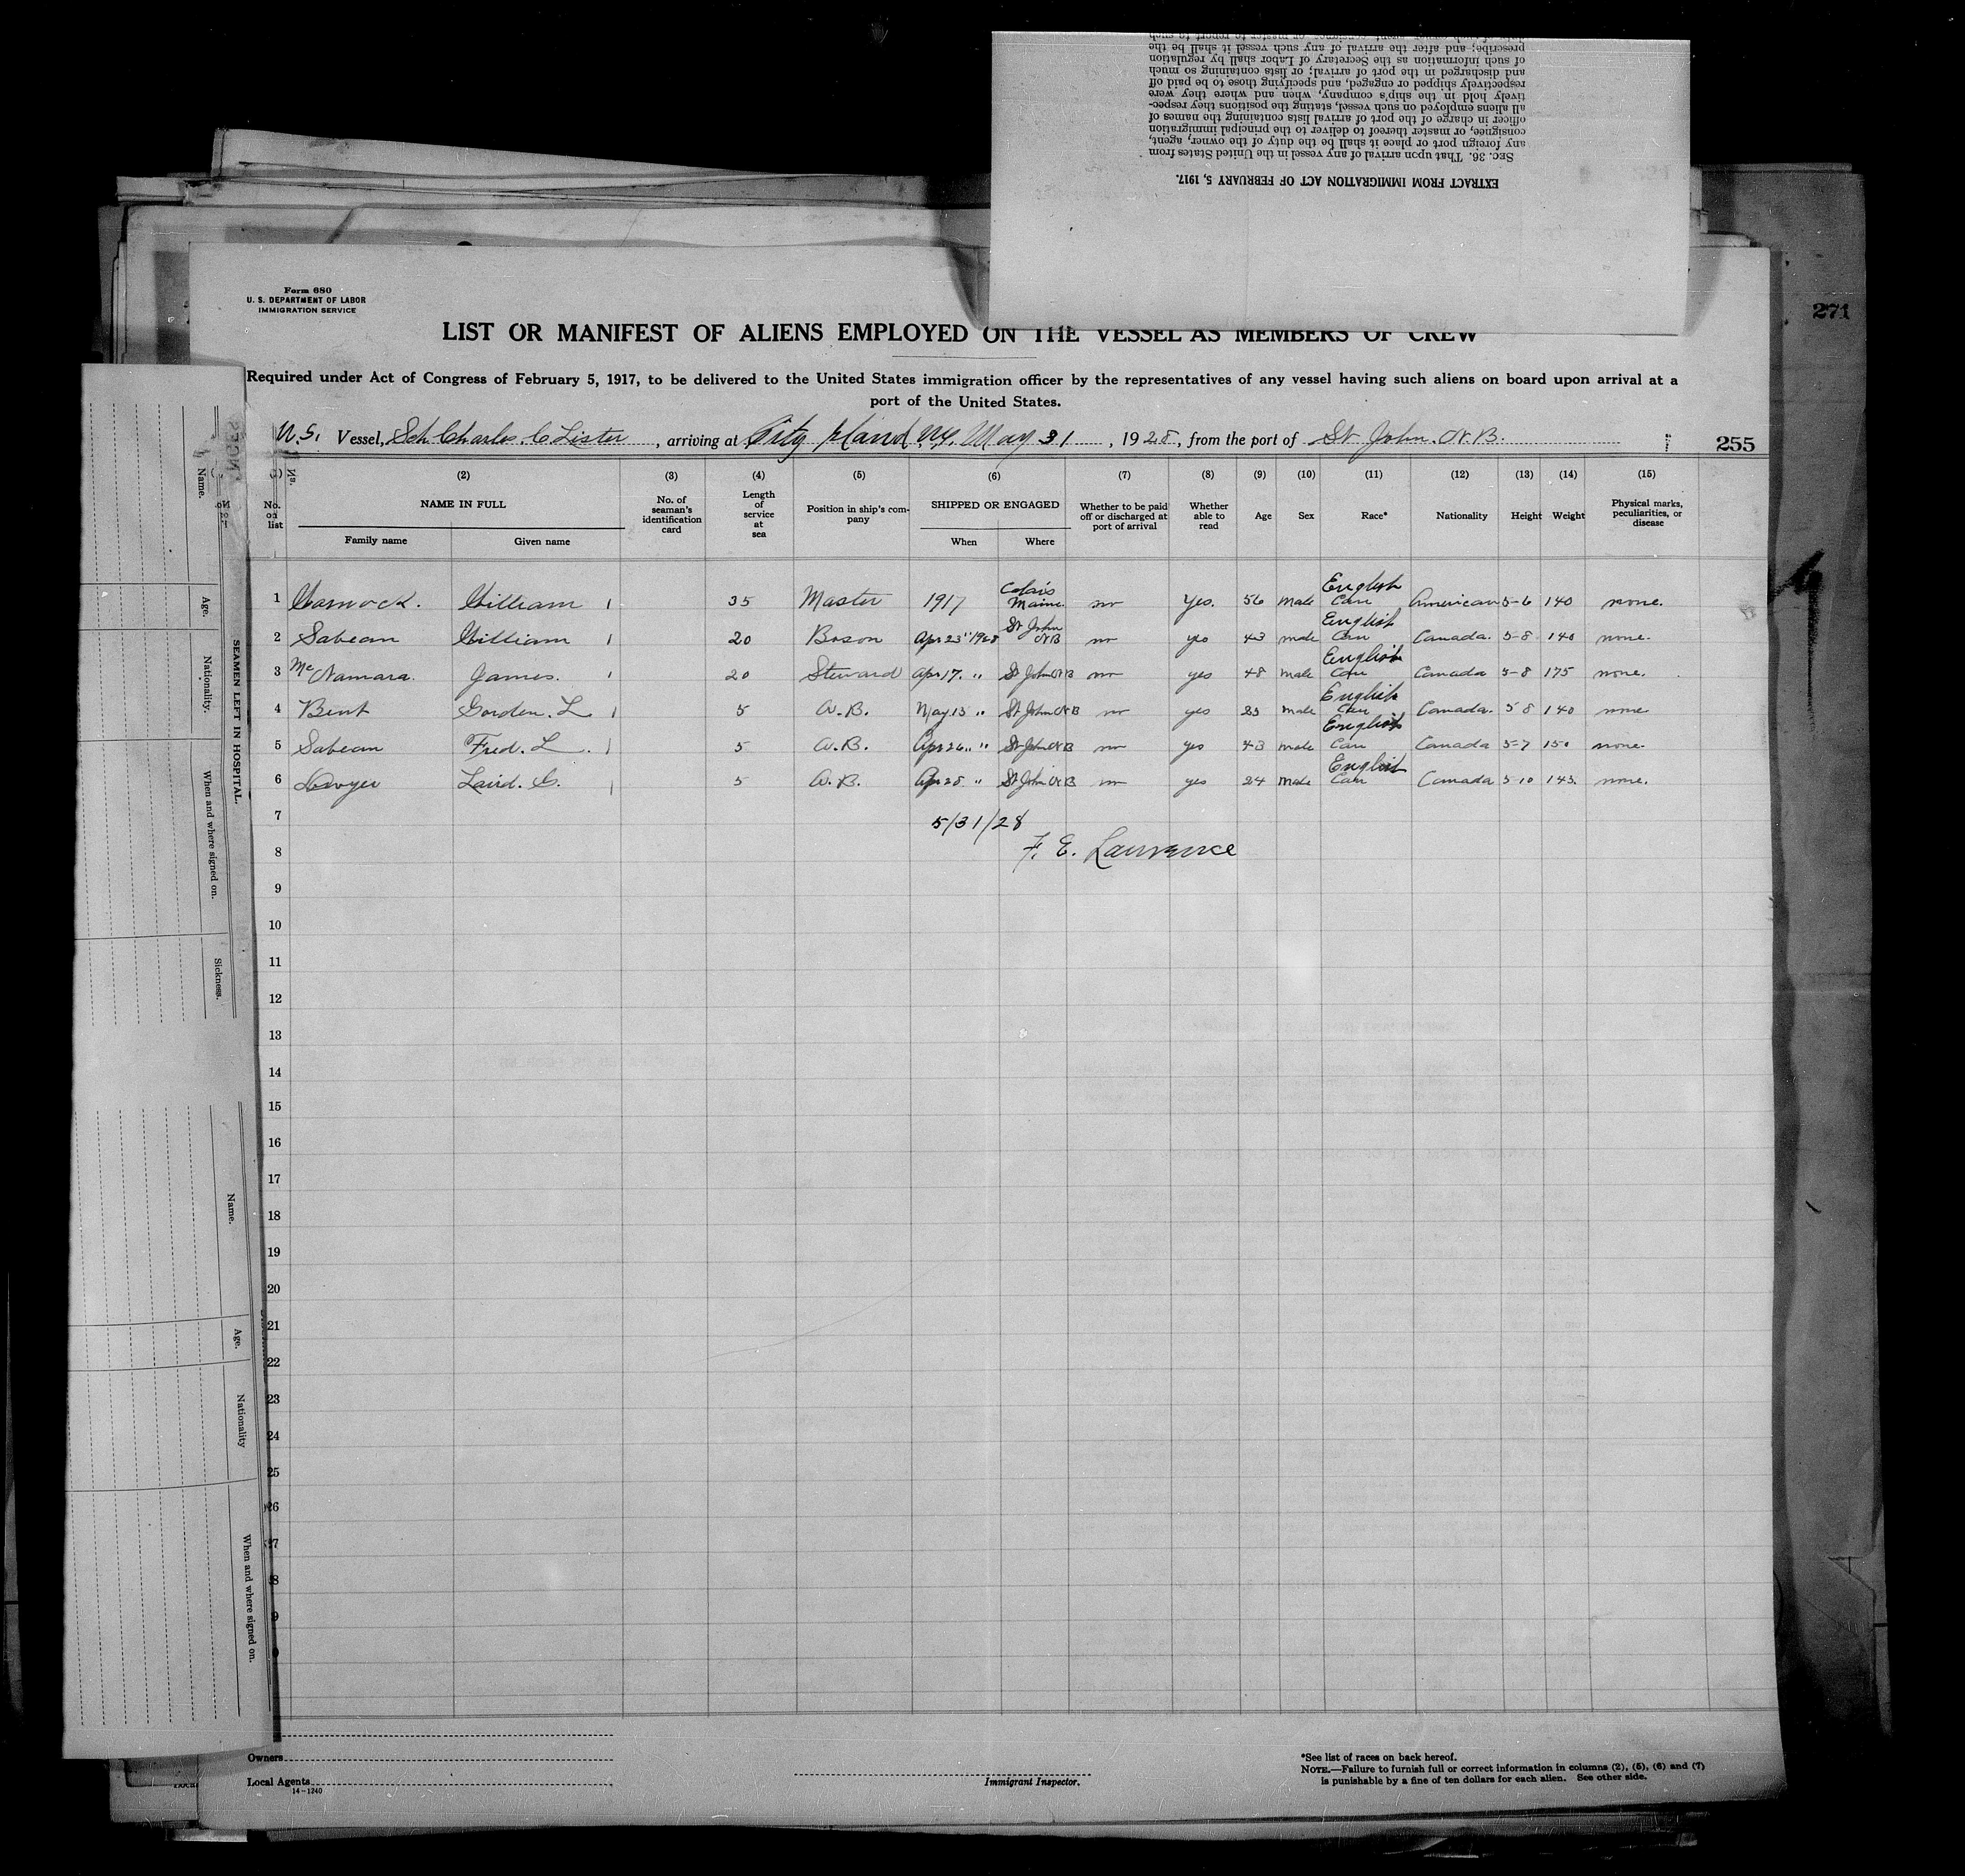 EXTRACT FROM IMMIGRATION ACT OF FEBRUARY 5, 1917.
SEC. 36. That upon arrival of any vessel in the United States from
any foreign port or place it shall be the duty of the owner, agent,
consignee, or master thereof to deliver to the principal immigration
officer in charge of the port of arrival lists containing the names of
all aliens employed on such vessel, stating the positions they respec-
tively hold in the ship's company, when and where they were
respectively shipped or engaged, and specifying those to be paid off
and discharged in the port of arrival; or lists containing so much
of such information as the Secretary of Labor shall by regulation
prescribe; and after the arrival of any such vessel it shall be the
271
Form 680
U. S. DEPARTMENT OF LABOR
IMMIGRATION SERVICE
LIST OR MANIFEST OF ALIENS EMPLOYED ON THE VESSEL AS MEMBERS OF CREW
Required under Act of Congress of February 5, 1917, to be delivered to the United States immigration officer by the representatives of any vessel having such aliens on board upon arrival at a
port of the United States.
U.S. Vessel, Sch Charles C Lister, arriving at City Island N.Y. May 31, 1928, from the port of St John. N.B. 255
(1) (2) (3) (4) (5) (6) (7) (8) (9) (10) (11) (12) (13) (14) (15)
No. on list NAME IN FULL No. of seaman's identification card Length of service at sea Position in ship's company SHIPPED OR ENGAGED Whether to be paid off or discharged at port of arrival Whether able to read Age Sex Race* Nationality Height Weight Physical marks, peculiarities, or disease
Family name Given name When Where
1 William 35 Master 1917 Calais Maine no yes. 56 male English Can American 5-6 140 none.
2 Sabean William 20 Boson Apr 23" 1928 St John NB no yes 43 male English Can Canada. 5-8 140 none.
3 McNamara. James. 20 Steward Apr 17. " St John NB no yes 48 male English Can Canada 5-8 175 none.
4 Bent Gorden. L 5 A.B. May 15 " St John NB no yes 23 male English Can Canada. 5 8 140 none
5 Sabean Fred. L. 5 A.B. Apr 26 " St John NB no yes 43 male English Can Canada 5-7 150 none.
6 Laird. C. 5 A.B. Apr 28 " St John NB no yes 24 male English Can Canada 5-10 143. none.
7 5/31/28
8 F. E. Lawrence
9
10
11
12
13
14
15
16
17
18
19
20
21
22
23
24
25
26
Owners
Local Agents
14-1240
Immigrant Inspector.
*See list of races on back hereof.
NOTE.—Failure to furnish full or correct information in columns (2), (5), (6) and (7)
is punishable by a fine of ten dollars for each alien. See other side.
SEAMEN LEFT IN HOSPITAL.
Name.
Age.
Nationality.
When and where signed on.
Sickness.
Name.
Age.
Nationality
When and where signed on.